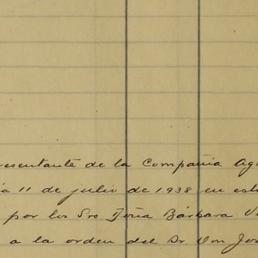 resentante de la Compañia Ag
ia 11 de julio de 1938 en est
por los Srs. Doña Bárbara V
a la orden del Sr. Don Jos